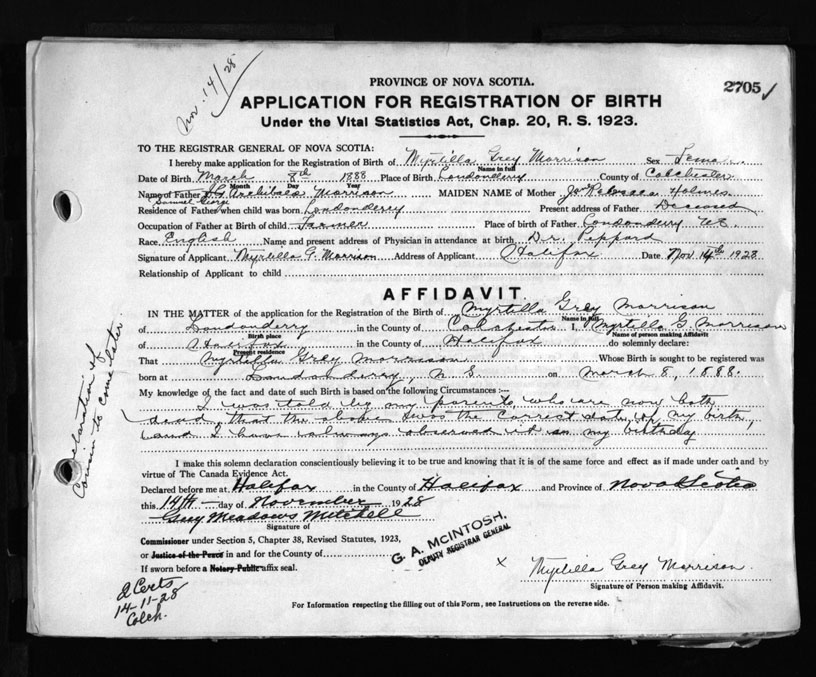 Nov. 14/28
PROVINCE OF NOVA SCOTIA.
2705
APPLICATION FOR REGISTRATION OF BIRTH
Under the Vital Statistics Act, Chap. 20, R. S. 1923.
TO THE REGISTRAR GENERAL OF NOVA SCOTIA:
I hereby make application for the Registration of Birth of Myrtilla Grey Morrison Sex Female
Name in full
Date of Birth March 8th 1888 Place of Birth Londonderry County of Colchester
Month Day Year
Name of Father Archibald Morrison MAIDEN NAME of Mother Rebecca Holmes
Samuel George
Residence of Father when child was born Londonderry Present address of Father Deceased
Occupation of Father at Birth of child Farmer Place of birth of Father Londonderry NS.
Race English Name and present address of Physician in attendance at birth Dr. Peppard
Signature of Applicant Myrtilla G. Morrison Address of Applicant Halifax Date Nov 14th 1928
Relationship of Applicant to child
AFFIDAVIT.
IN THE MATTER of the application for the Registration of the Birth of Myrtilla Grey Morrison
Name in full
of Londonderry in the County of Colchester I, Myrtilla G. Morrison
Birth place Name of person making Affidavit
of Halifax in the County of Halifax do solemnly declare:
Present residence
That Myrtilla Grey Morrison Whose Birth is sought to be registered was
born at Londonderry, N.S. on March 8, 1888.
My knowledge of the fact and date of such Birth is based on the following Circumstances :—
I was told by my parents, who are now both
dead, that the above was the correct date of my birth,
and I have always observed it as my birthday
I make this solemn declaration conscientiously believing it to be true and knowing that it is of the same force and effect as if made under oath and by
virtue of The Canada Evidence Act.
Declared before me at Halifax in the County of Halifax and Province of Nova Scotia
this 14th day of November 1928
Guy Meadows Mitchell
Signature of
Commissioner under Section 5, Chapter 38, Revised Statutes, 1923,
or Justice of the Peace in and for the County of
If sworn before a Notary Public affix seal.
G. A. McINTOSH.
DEPUTY REGISTRAR GENERAL
x Myrtilla Grey Morrison.
Signature of Person making Affidavit.
For Information respecting the filling out of this Form, see Instructions on the reverse side.
Declaration of
Cousin to come later.
2 Certs
14-11-28
Colch.